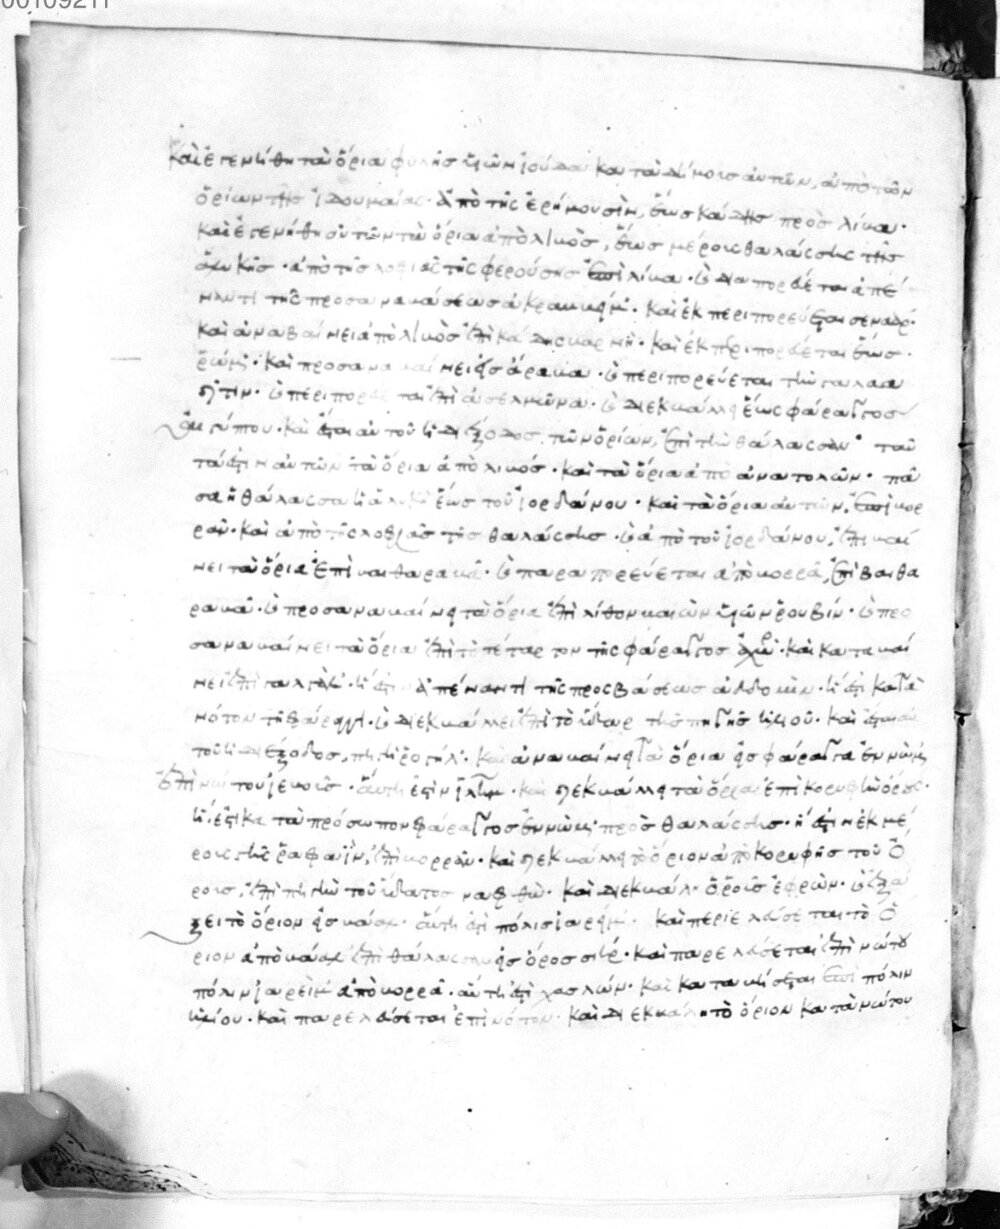 00109211
καὶ ἐγενήθη τὰ ὅρια φυλῆς υἱῶν ἰούδα κατὰ δήμους αὐτῶν, ἀπὸ τῶν
ὁρίων τῆς ἰδουμαίας· ἀπὸ τῆς ἐρήμου σὶν, ἕως κάδης πρὸς λίβα·
καὶ ἐγενήθη αὐτῶν τὰ ὅρια ἀπὸ λιβὸς, ἕως μέρους θαλάσσης τῆς
ἁλυκῆς· ἀπὸ τῆς λοφιᾶς τῆς φερούσης ἐπὶ λίβα· καὶ διαπορεύεται ἀπέ
ναντι τῆς προσαναβάσεως ἀκραβίμ· καὶ ἐκπεριπορεύεται
καὶ ἀναβαίνει ἀπὸ λιβὸς ἐπὶ κάδης βαρνὴ· καὶ ἐκπεριπορεύεται ἕως
καὶ προσαναβαίνει εἰς ἄρακα· καὶ περιπορεύεται τὴν
καὶ περιπορεύεται ἐπὶ ἀσελμῶνα· καὶ διεκβάλλει ἕως φάραγγος
αἰγύπτου· καὶ ἔσται αὐτοῦ ἡ διέξοδος τῶν ὁρίων, ἐπὶ τὴν θάλασσαν· ταῦ
τά ἐστιν αὐτῶν τὰ ὅρια ἀπὸ λιβός· καὶ τὰ ὅρια ἀπὸ ἀνατολῶν· πᾶ
σα ἡ θάλασσα ἡ ἁλυκὴ ἕως τοῦ ἰορδάνου· καὶ τὰ ὅρια αὐτῶν, ἐπὶ βορ
ρᾶν· καὶ ἀπὸ τῆς λοφιᾶς τῆς θαλάσσης· καὶ ἀπὸ τοῦ ἰορδάνου, ἐπιβαί
νει τὰ ὅρια ἐπὶ βαιθαραβὰ· καὶ παραπορεύεται ἀπὸ βορρᾶ, ἐπὶ βαιθα
ραβὰ· καὶ προσαναβαίνει τὰ ὅρια ἐπὶ λίθον βαιὼν υἱῶν ῥουβίν· καὶ προ
σαναβαίνει τὰ ὅρια ἐπὶ τὸ τέταρτον τῆς φάραγγος ἀχώρ· καὶ καταβαί
νει ἐπὶ γαλγάλ· ἥ ἐστιν ἀπέναντι τῆς προσβάσεως ἀδδομὶν· ἥ ἐστι κατὰ
νότον τῇ φάραγγι· καὶ διεκβάλλει ἐπὶ τὸ ὕδωρ τῆς πηγῆς ἡλίου· καὶ ἔσται αὐ
τοῦ ἡ διέξοδος, πηγὴ ῥογήλ· καὶ ἀναβαίνει τὰ ὅρια εἰς φάραγγα ἐννὼμ
ἐπὶ νώτου ἰεβοῦς· αὕτη ἐστὶν ἱλήμ· καὶ διεκβάλλει τὰ ὅρια ἐπὶ κορυφὴν ὄρους·
ἥ ἐστι κατὰ πρόσωπον φάραγγος ἐννὼμ πρὸς θαλάσσης· ἥ ἐστιν ἐκ μέ
ρους τῆς ῥαφαῒν, ἐπὶ βορρᾶν· καὶ διεκβάλλει τὸ ὅριον ἀπὸ κορυφῆς τοῦ ὄ
ρους, ἐπὶ πηγὴν τοῦ ὕδατος ναφθὼ· καὶ διεκβάλλει ὄρους ἐφρών· καὶ ἐξά
ξει τὸ ὅριον εἰς βάαλ· αὕτη ἐστὶ πόλις ἰαρείμ· καὶ περιελεύσεται τὸ ὅ
ριον ἀπὸ βάαλ ἐπὶ θάλασσαν εἰς ὄρος σιείρ· καὶ παρελεύσεται ἐπὶ νώτου
πόλιν ἰαρεὶμ ἀπὸ βορρᾶ· αὕτη ἐστὶ χασλών· καὶ καταβήσεται ἐπὶ πόλιν
ἡλίου· καὶ παρελεύσεται ἐπὶ νότον· καὶ διεκβάλλει τὸ ὅριον κατὰ νώτου